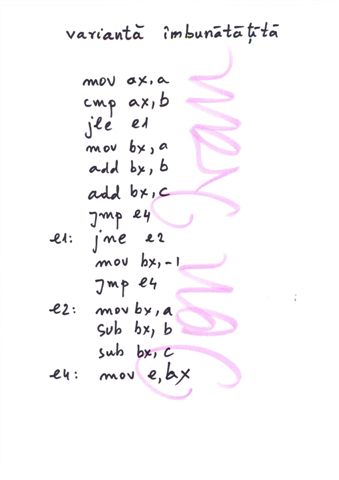 variantă îmbunătățită
mov ax, a
cmp ax, b
jle e1
mov bx, a
add bx, b
add bx, c
jmp e4
e1: jne e2
mov bx, -1
jmp e4
e2: mov bx, a
sub bx, b
sub bx, c
e4: mov e, bx